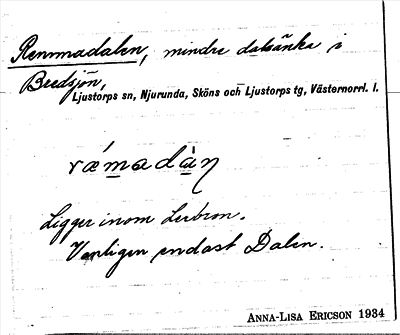 Remmadalen, mindre dalsänka i
Bredsjön,
Ljustorps sn, Njurunda, Sköns och Ljustorps tg, Västernorrl. l.
ræ´madàn̥
Ligger inom
Vanligen endast Dalen.
ANNA-LISA ERICSON 1934